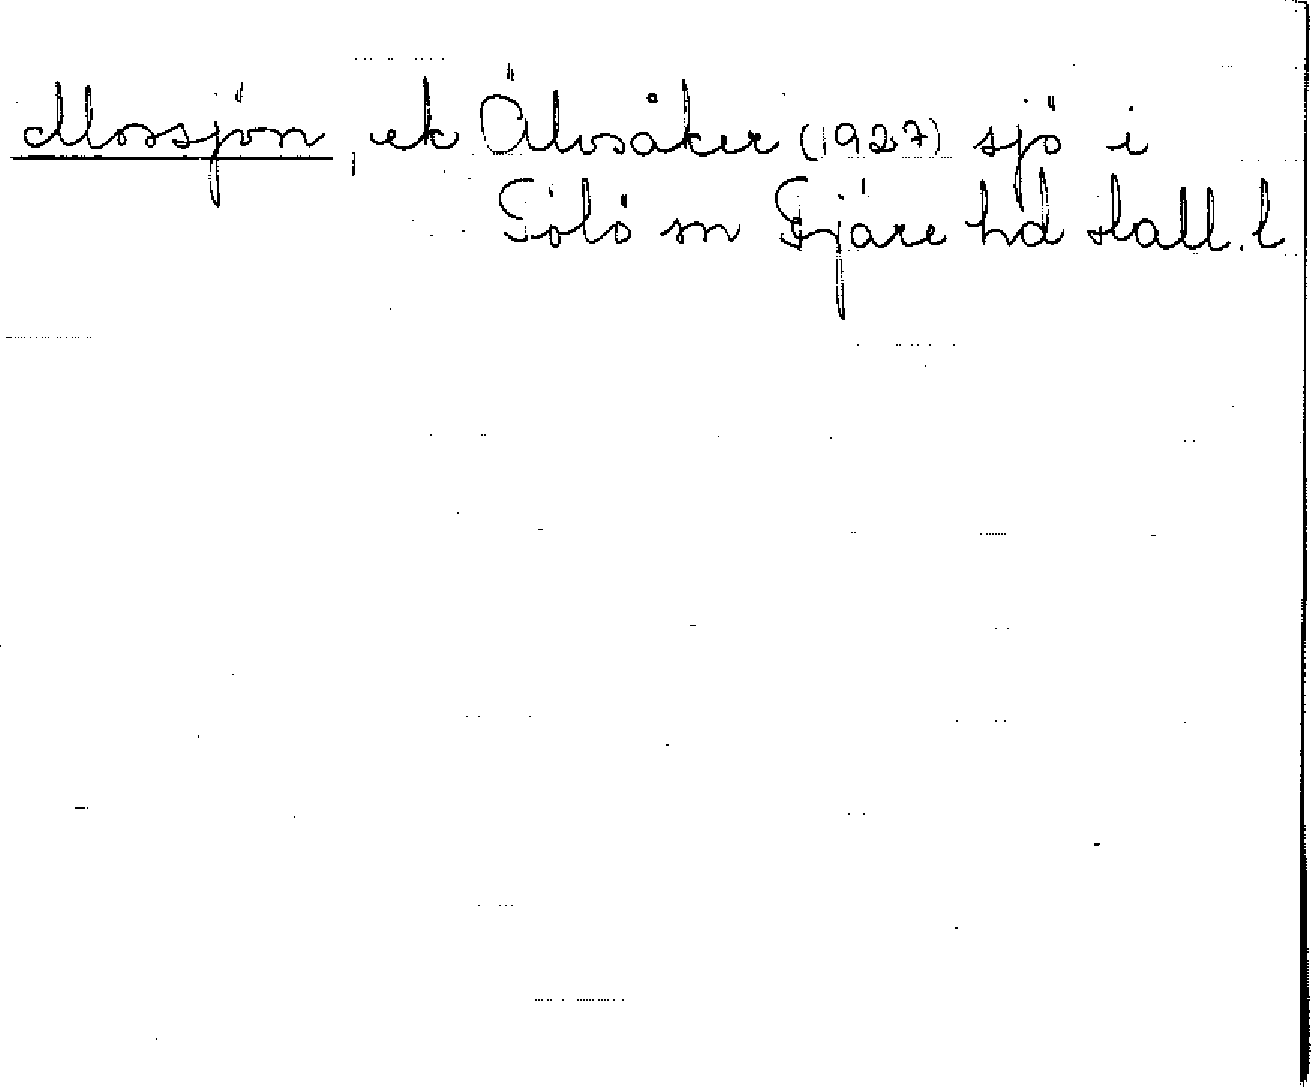 Mossjön, ek Älvsåker (1927) sjö i
Tölö sn Fjäre hd Hall. l